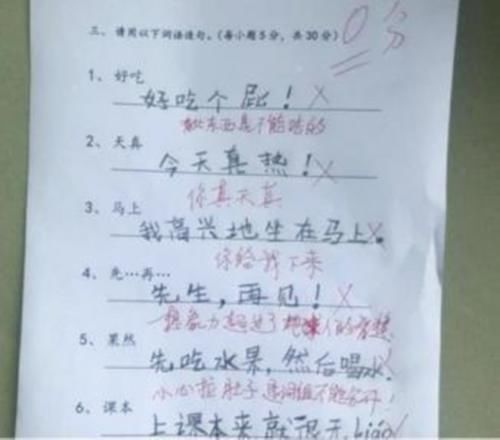 0分
三、请用以下词语造句。(每小题5分，共30分)
1、好吃
好吃个屁！
此东西是不能吃的
2、天真
今天真热！
你真天真
3、马上
我高兴地坐在马上。
你给我下来
4、先……再……
先生，再见！
想象力超过了地球人的智慧
5、果然
先吃水果，然后喝水
小心拉肚子 是词组不能分开！
6、课本
上课本来就很无liáo